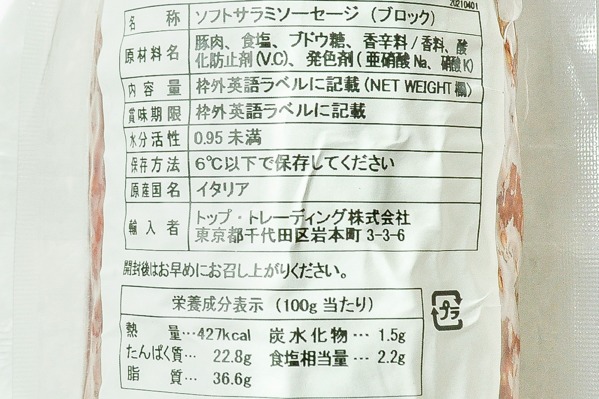 20210401
名称 ソフトサラミソーセージ（ブロック）
原材料名 豚肉、食塩、ブドウ糖、香辛料/香料、酸
化防止剤(V.C)、発色剤(亜硝酸Na、硝酸K)
内容量 枠外英語ラベルに記載(NET WEIGHT欄)
賞味期限 枠外英語ラベルに記載
水分活性 0.95未満
保存方法 6℃以下で保存してください
原産国名 イタリア
輸入者 トップ・トレーディング株式会社
東京都千代田区岩本町3-3-6
開封後はお早めにお召し上がりください。
栄養成分表示（100g当たり）
熱量…427kcal 炭水化物… 1.5g
たんぱく質… 22.8g 食塩相当量… 2.2g
脂質… 36.6g
プラ